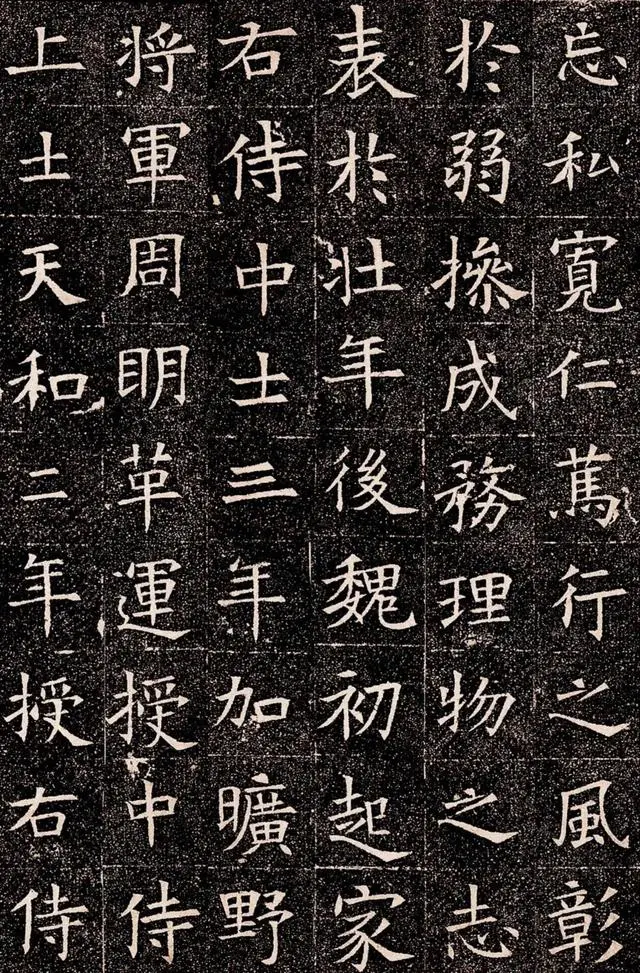 忘私寬仁篤行之風彰
於弱操成務理物之志
表於壯年後魏初起家
右侍中士三年加曠野
將軍周明革運授中侍
上士天和二年授右侍